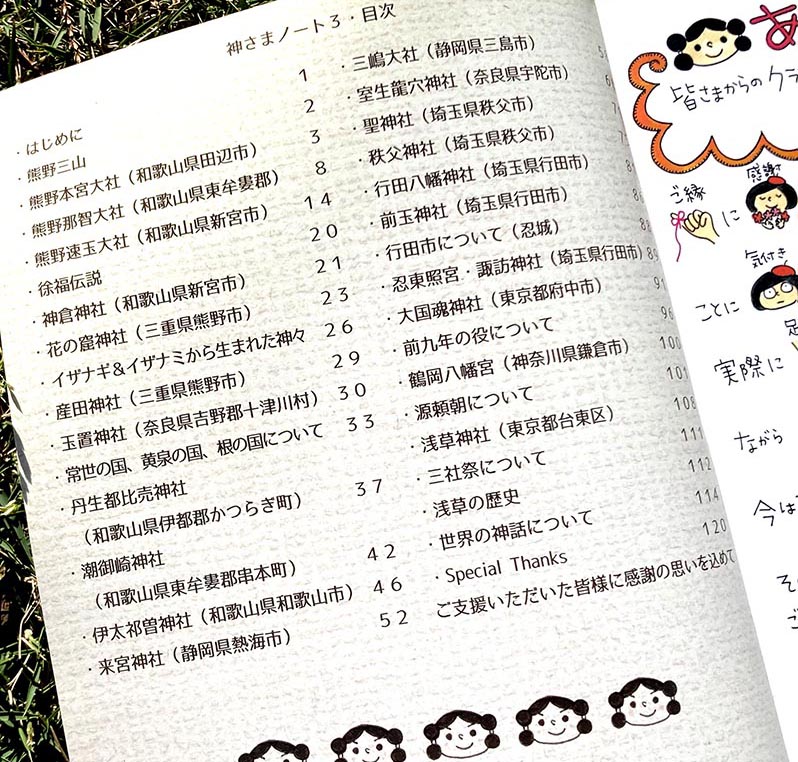 神さまノート3・目次
・はじめに 1
・熊野三山 2
・熊野本宮大社（和歌山県田辺市） 3
・熊野那智大社（和歌山県東牟婁郡） 8
・熊野速玉大社（和歌山県新宮市） 14
・徐福伝説 20
・神倉神社（和歌山県新宮市） 21
・花の窟神社（三重県熊野市） 23
・イザナギ＆イザナミから生まれた神々 26
・産田神社（三重県熊野市） 29
・玉置神社（奈良県吉野郡十津川村） 30
・常世の国、黄泉の国、根の国について 33
・丹生都比売神社
（和歌山県伊都郡かつらぎ町） 37
・潮御崎神社
（和歌山県東牟婁郡串本町） 42
・伊太祁曽神社（和歌山県和歌山市） 46
・来宮神社（静岡県熱海市） 52
・三嶋大社（静岡県三島市）
・室生龍穴神社（奈良県宇陀市）
・聖神社（埼玉県秩父市）
・秩父神社（埼玉県秩父市）
・行田八幡神社（埼玉県行田市）
・前玉神社（埼玉県行田市）
・行田市について（忍城）
・忍東照宮・諏訪神社（埼玉県行田市） 89
・大国魂神社（東京都府中市） 91
・前九年の役について 96
・鶴岡八幡宮（神奈川県鎌倉市） 100
・源頼朝について
・浅草神社（東京都台東区） 108
・三社祭について 111
・浅草の歴史 112
・世界の神話について 114
・Special Thanks 120
ご支援いただいた皆様に感謝の思いを込めて
あ
皆さまからのクラ
ご縁 に 感謝
ことに 気付き
実際に 足
ながら
今は
そ
ご